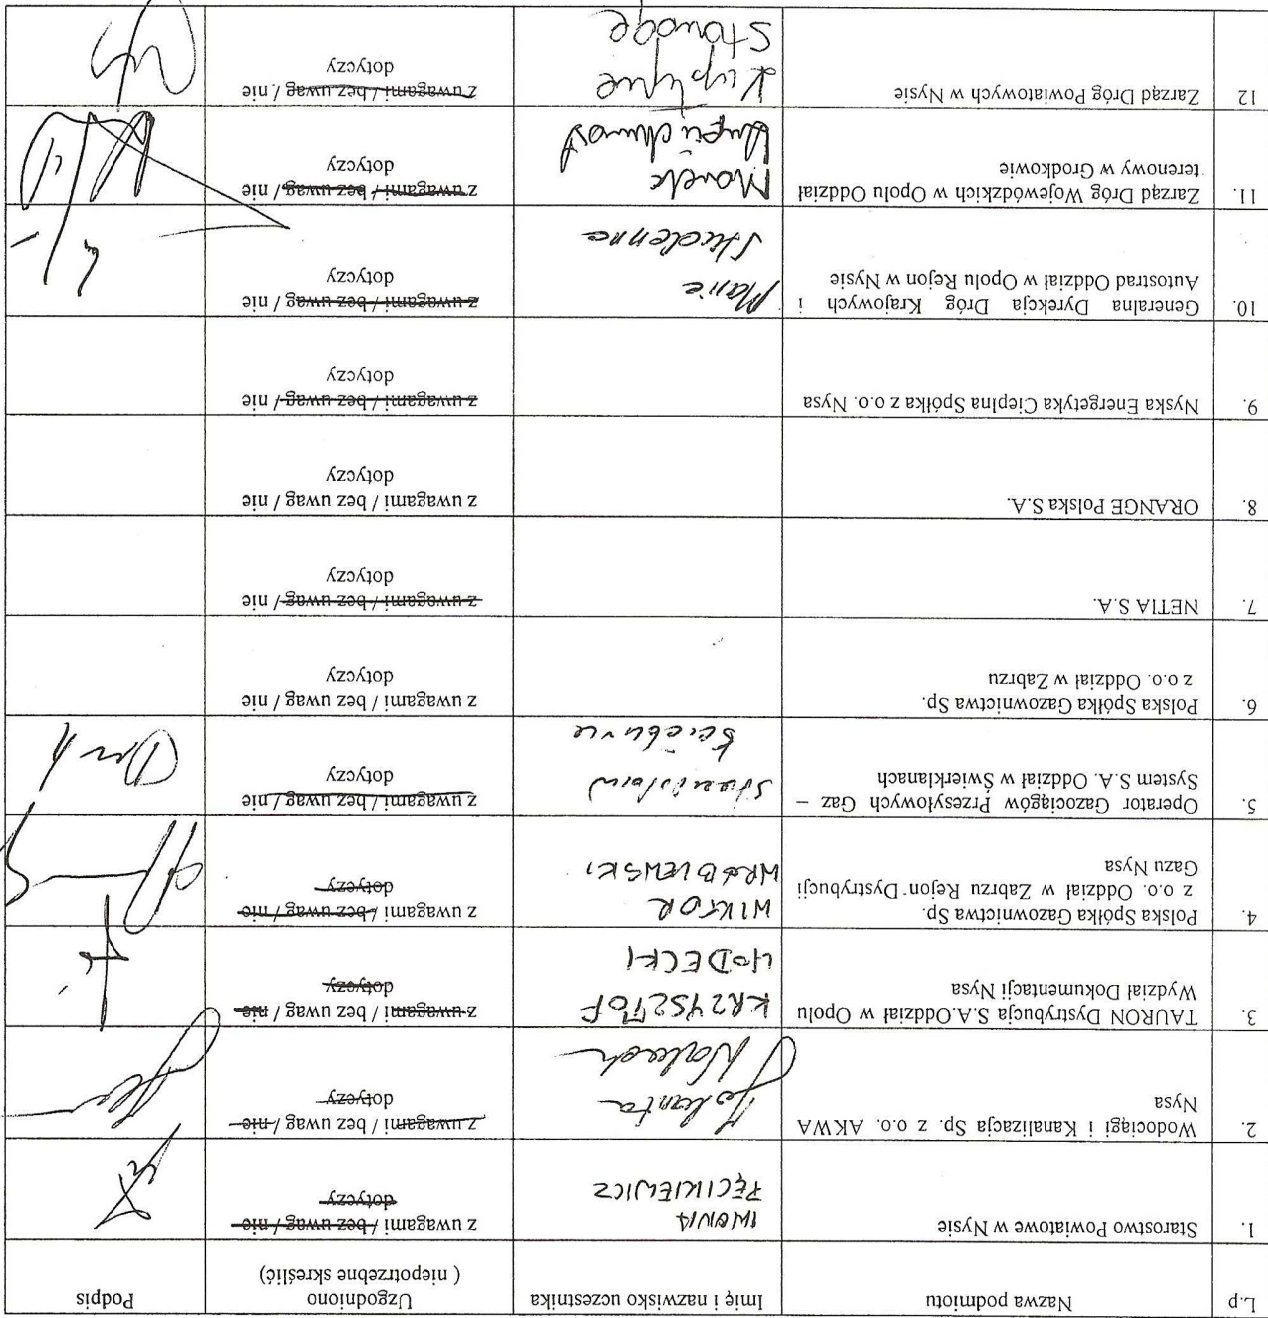 L.p
Nazwa podmiotu
Imię i nazwisko uczestnika
Uzgodniono
( niepotrzebne skreślić)
Podpis
1.
Starostwo Powiatowe w Nysie
IWONA
z uwagami / bez uwag / nie
dotyczy
2.
Wodociągi i Kanalizacja Sp. z o.o. AKWA
Nysa
Jolanta
z uwagami / bez uwag / nie
dotyczy
3.
TAURON Dystrybucja S.A.Oddział w Opolu
Wydział Dokumentacji Nysa
KRZYSZTOF
z uwagami / bez uwag / nie
dotyczy
4.
Polska Spółka Gazownictwa Sp.
z o.o. Oddział w Zabrzu Rejon Dystrybucji
Gazu Nysa
WIKTOR
WRÓBLEWSKI
z uwagami / bez uwag / nie
dotyczy
5.
Operator Gazociągów Przesyłowych Gaz –
System S.A. Oddział w Świerklanach
Stanisław
z uwagami / bez uwag / nie
dotyczy
6.
Polska Spółka Gazownictwa Sp.
z o.o. Oddział w Zabrzu
z uwagami / bez uwag / nie
dotyczy
7.
NETIA S.A.
z uwagami / bez uwag / nie
dotyczy
8.
ORANGE Polska S.A.
z uwagami / bez uwag / nie
dotyczy
9.
Nyska Energetyka Cieplna Spółka z o.o. Nysa
z uwagami / bez uwag / nie
dotyczy
10.
Generalna Dyrekcja Dróg Krajowych i
Autostrad Oddział w Opolu Rejon w Nysie
z uwagami / bez uwag / nie
dotyczy
11.
Zarząd Dróg Wojewódzkich w Opolu Oddział
terenowy w Grodkowie
Marek
z uwagami / bez uwag / nie
dotyczy
12
Zarząd Dróg Powiatowych w Nysie
z uwagami / bez uwag / nie
dotyczy